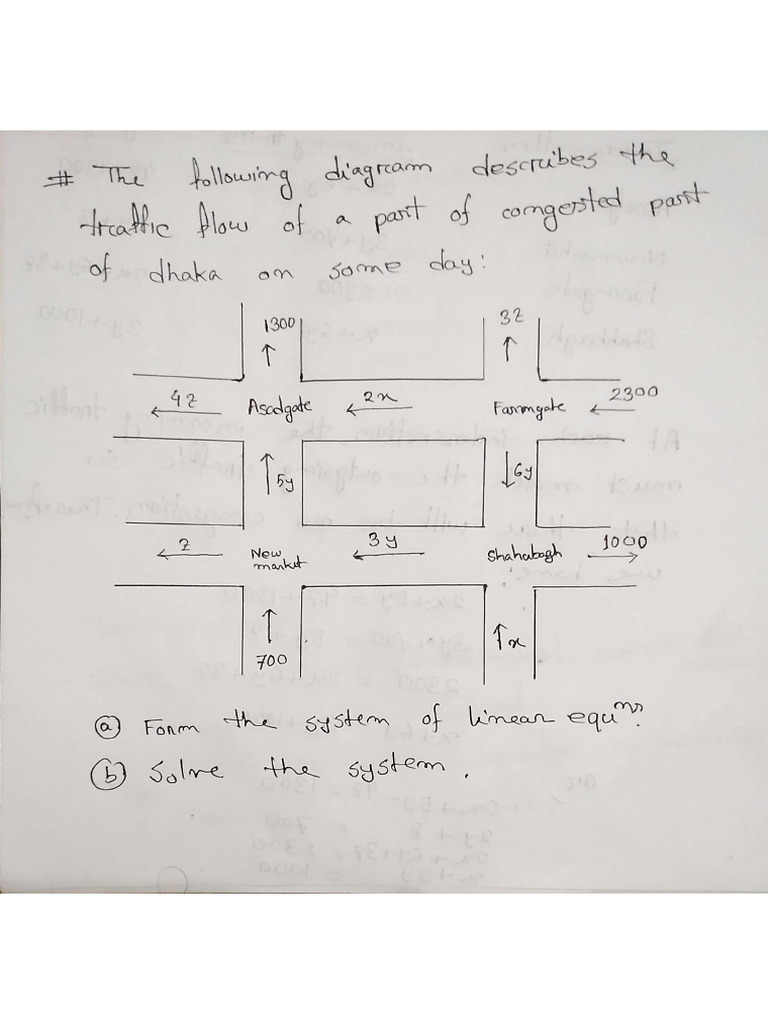 # The following diagram describes the
traffic flow of a part of congested part
of dhaka on some day:
1300
3z
4z
Asadgate
2x
Farmgate
2300
5y
6y
z
New
market
3y
Shahabagh
1000
700
x
(a) Form the system of linear equⁿˢ.
(b) Solve the system.